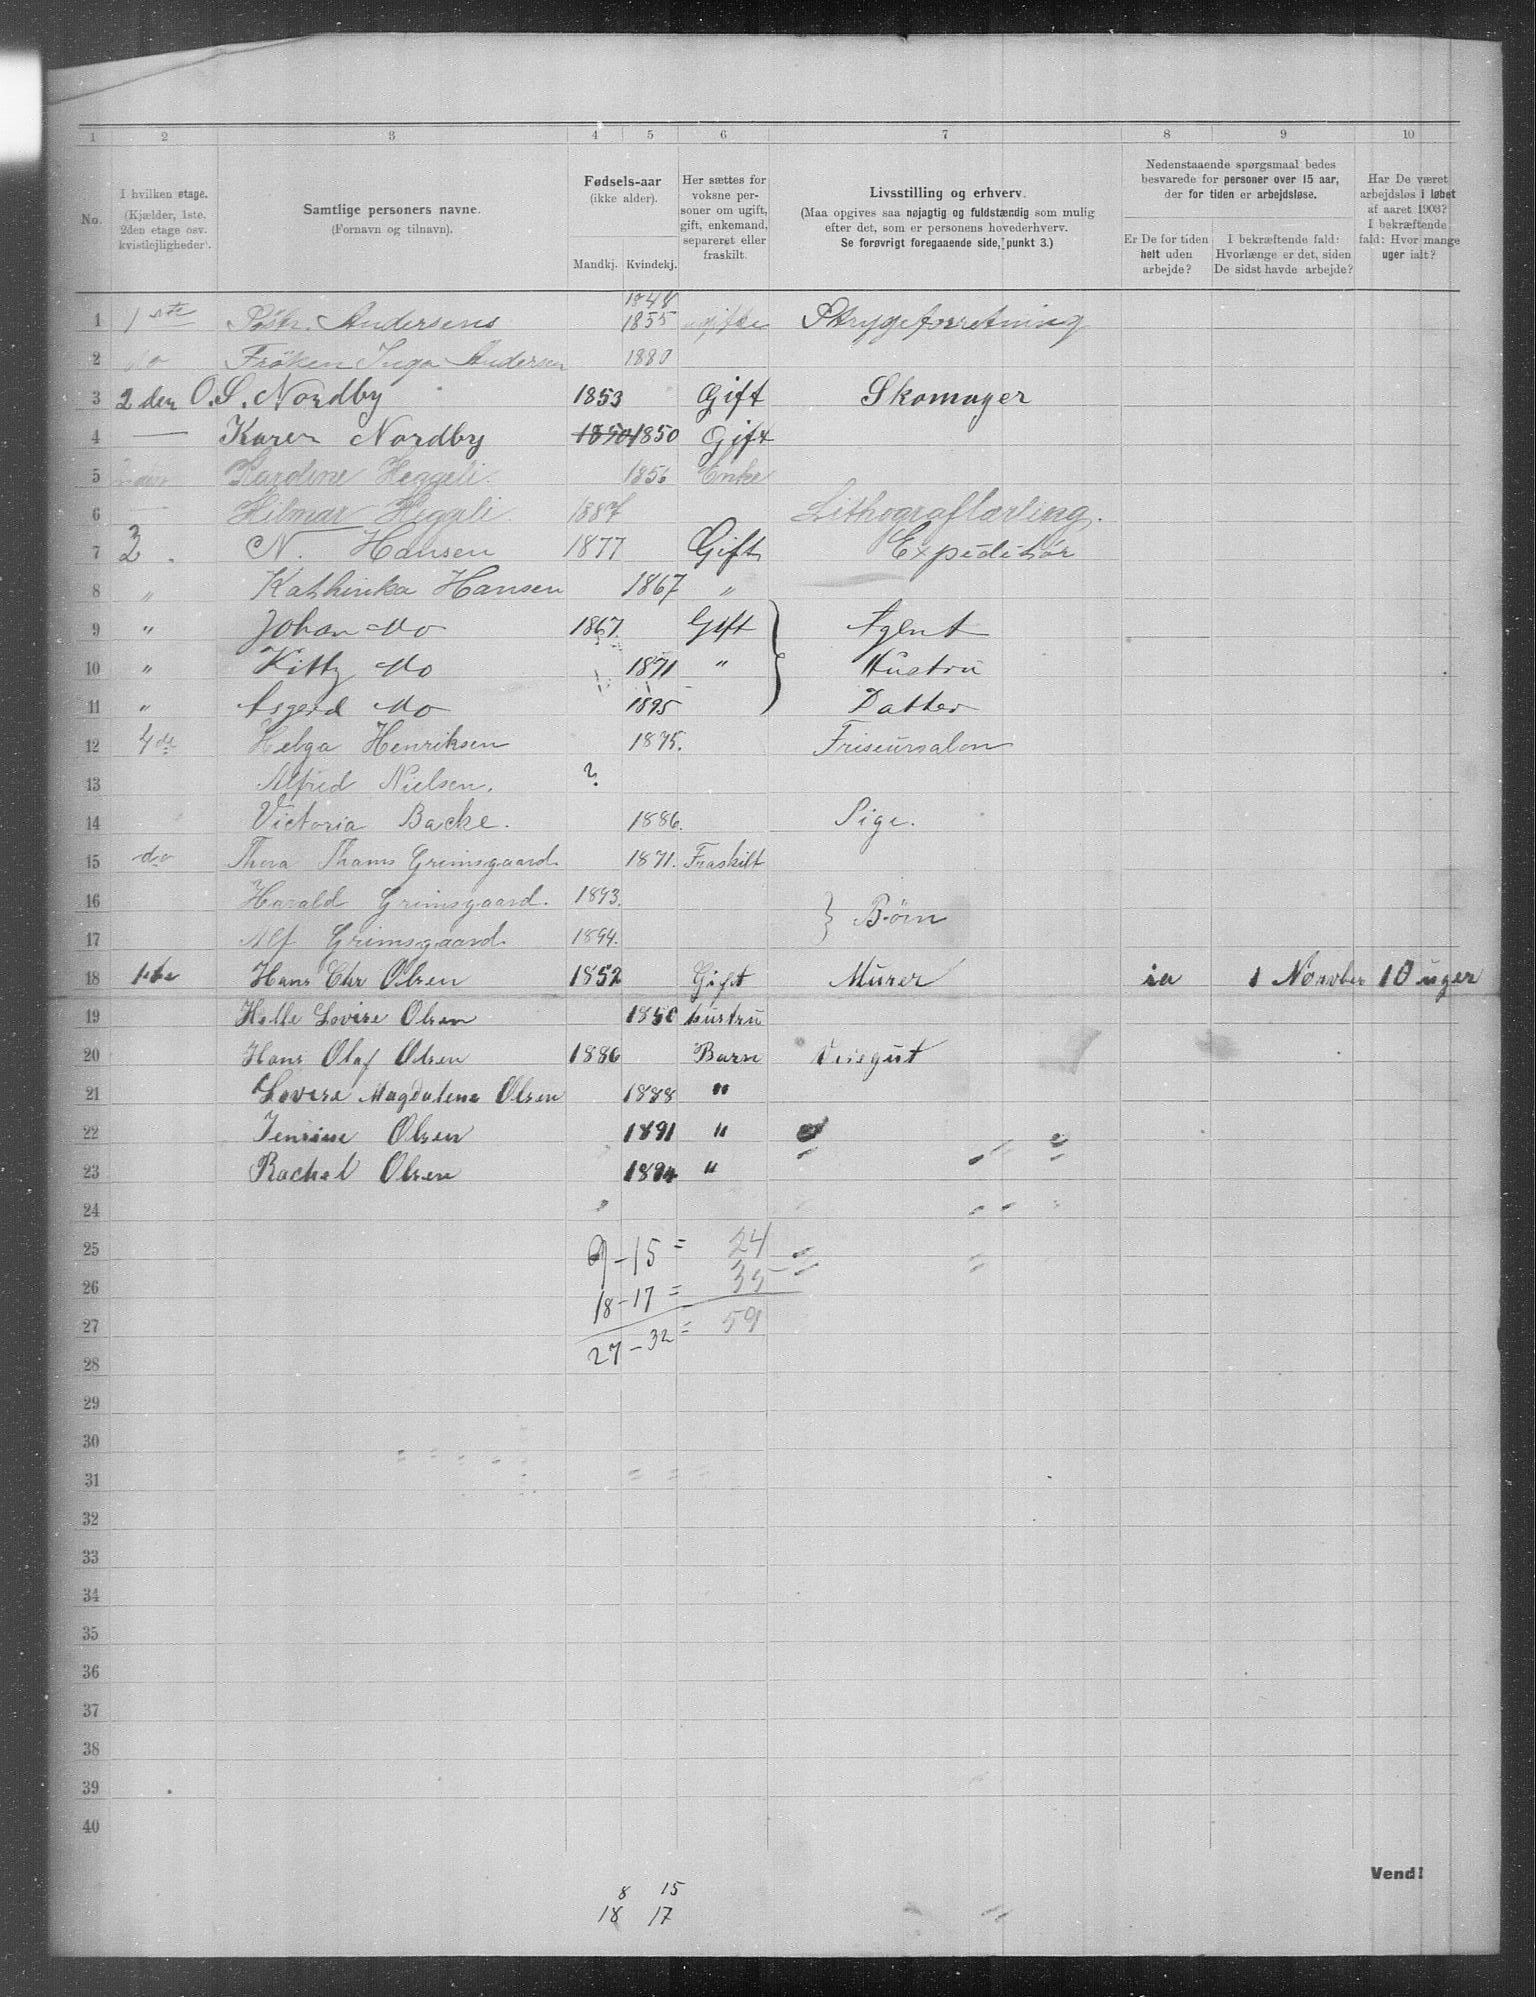 1 2 3 4 5 6 7 8 9 10
No.
I hvilken etage. (Kjælder, 1ste. 2den etage osv. kvistlejligheder).
Samtlige personers navne. (Fornavn og tilnavn).
Fødsels-aar (ikke alder). Mandkj. Kvindekj.
Her sættes for voksne personer om ugift, gift, enkemand, separeret eller fraskilt.
Livsstilling og erhverv. (Maa opgives saa nøjagtig og fuldstændig som mulig efter det, som er personens hovederhverv. Se forøvrigt foregaaende side, punkt 3.)
Nedenstaaende spørgsmaal bedes besvarede for personer over 15 aar, der for tiden er arbejdsløse.
Er De for tiden helt uden arbejde?
I bekræftende fald: Hvorlænge er det, siden De sidst havde arbejde?
Har De været arbejdsløs i løbet af aaret 1903? I bekræftende fald: Hvor mange uger ialt?
1848
1 1ste Andersens 1855 Strygeforretning
2 do Frøken Inga Andersen 1880
3 2den O. S. Nordby 1853 Gift Skomager
4 — Karen Nordby 1850 1850 Gift
5 Heggeli. 1856 Enke
6 Hilmar Heggeli 1887 Lithograflærling.
7 3. N. Hansen 1877 Gift Expeditør
8 " Kathinka Hansen 1867 "
9 " Johan Mo 1867. Gift Agent
10 " Kitty Mo 1871 " Hustru
11 " Asgerd Mo 1895 Datter
12 4de Helga Henriksen 1875. Friseursalon
13 Alfred Nielsen. ?
14 Victoria Backe. 1886. Pige.
15 do Thora Thams Grimsgaard 1871. Fraskilt
16 Harald Grimsgaard. 1893. } Børn
17 Alf Grimsgaard 1894.
18 1ste Hans Chr Olsen 1852 Gift Murer ia 1 Novber 10 uger
19 Helle Lovise Olsen 1850 hustru
20 Hans Olaf Olsen 1886 Barn Visegut
21 Lovise Magdalene Olsen 1888 "
22 Olsen 1891 "
23 Rachel Olsen 1894 "
24
25 9-15 = 24
26 18-17 = 35
27 27-32 = 59
28
29
30
31
32
33
34
35
36
37
38
39
40
Vend!
8 15
18 17